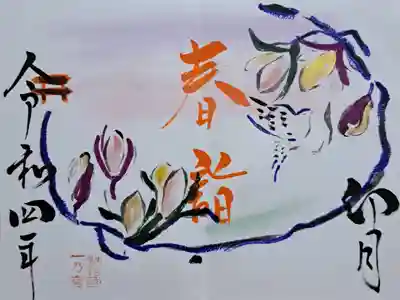 卯月
春詣
令和四年